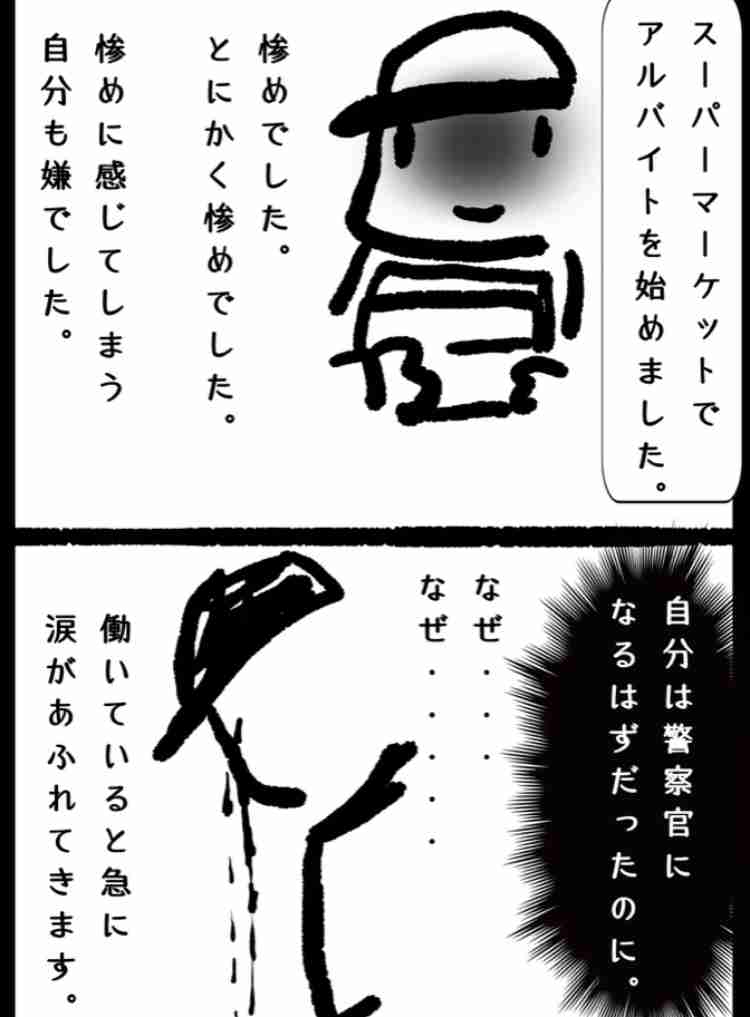 スーパーマーケットで
アルバイトを始めました。
惨めでした。
とにかく惨めでした。
惨めに感じてしまう
自分も嫌でした。
自分は警察官に
なるはずだったのに。
なぜ・・・
なぜ・・・・・
働いていると急に
涙があふれてきます。